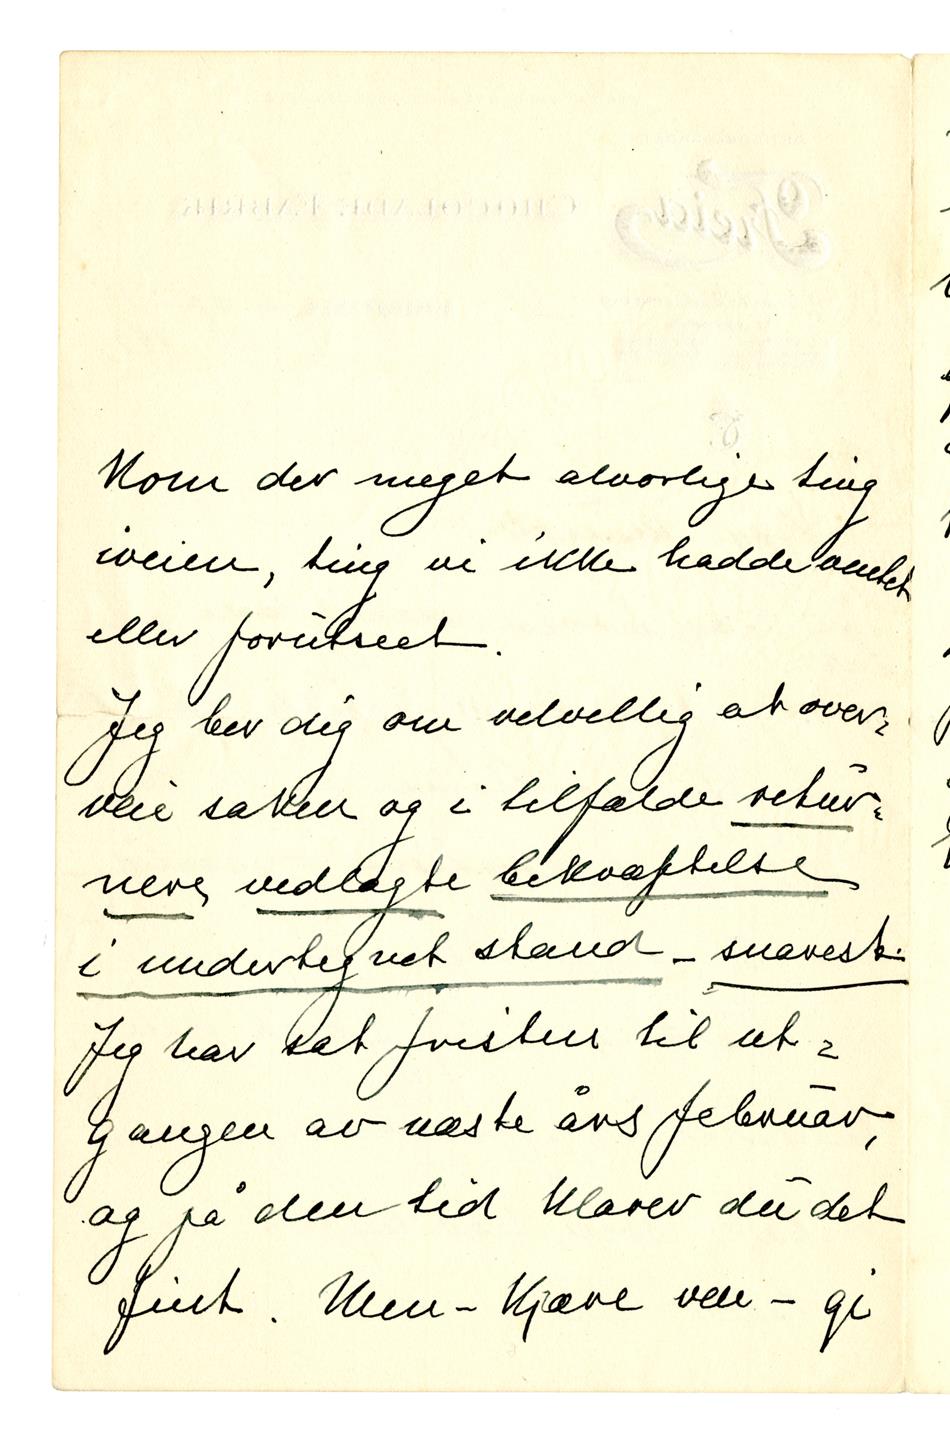 kom der meget alvorlige ting
iveien, ting vi ikke hadde ventet
eller forutseet.
Jeg ber dig om velvillig at over-
veie saken og i tilfælde retur-
nere vedlagte bekræftelse
i undertegnet stand – snarest.
Jeg har sat fristen til ut-
gangen av næste års februar,
og på den tid klarer du det
fint. Men – kjære ven – gi